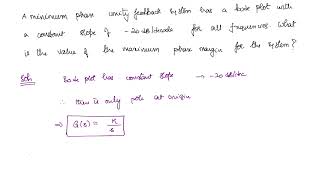 A minimum phase unity feedback system has a bode plot with
a constant slope of -20 db/decade for all frequencies. What
is the value of the maximum phase margin for the system?
Soln
Bode plot has constant slope → -20 db/dec
∴ there is only pole at origin
⇒ G(s) = K/s